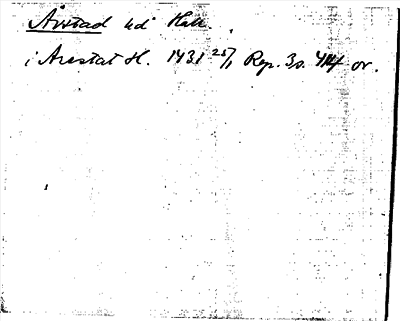 Årstad hd Hall.
i Arestat H. 1431 25/1 Rep. 3 s. 414 or.